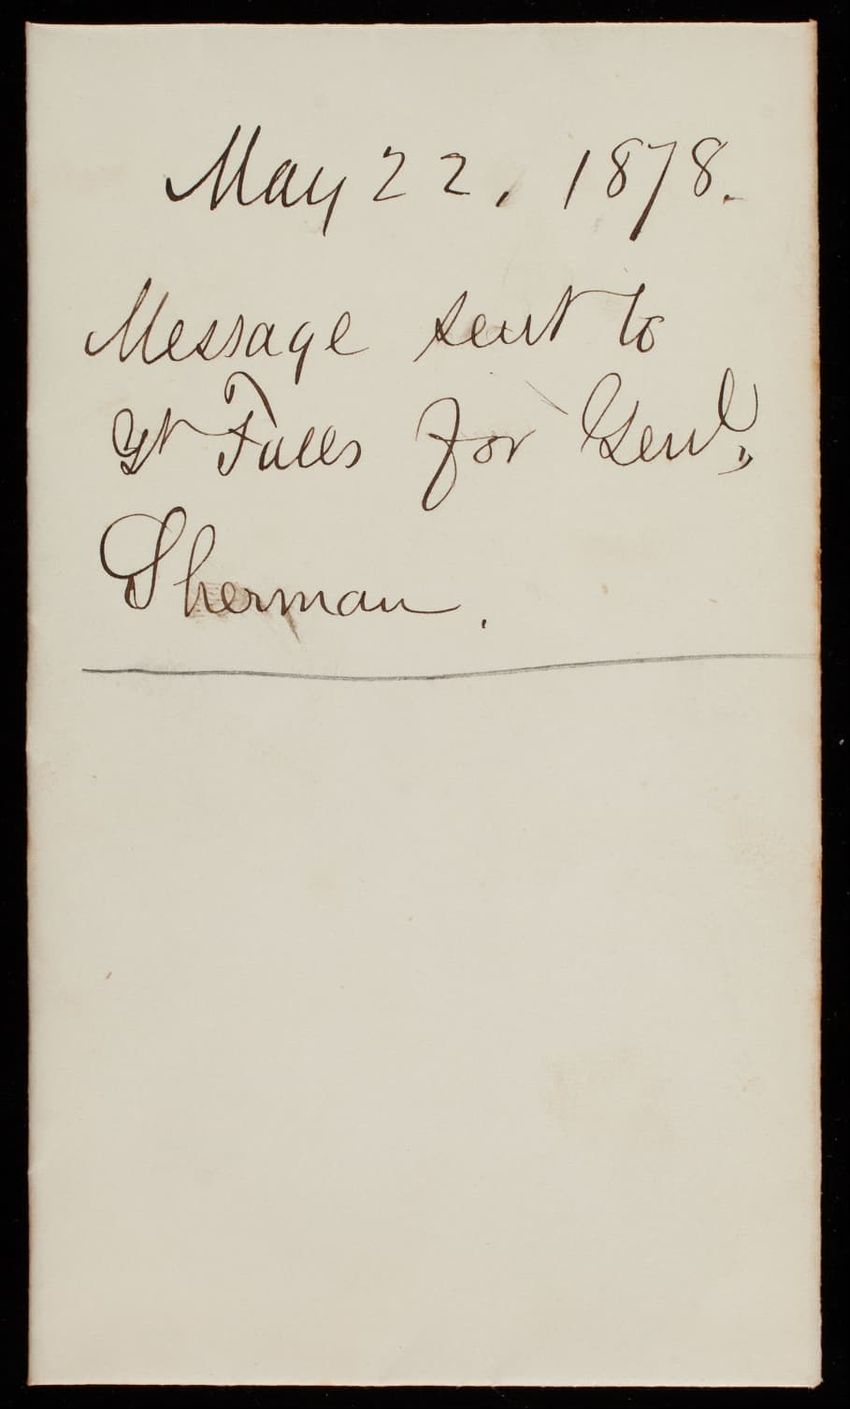 May 22, 1878.
Message sent to
Gt Falls for Genl.
Sherman.